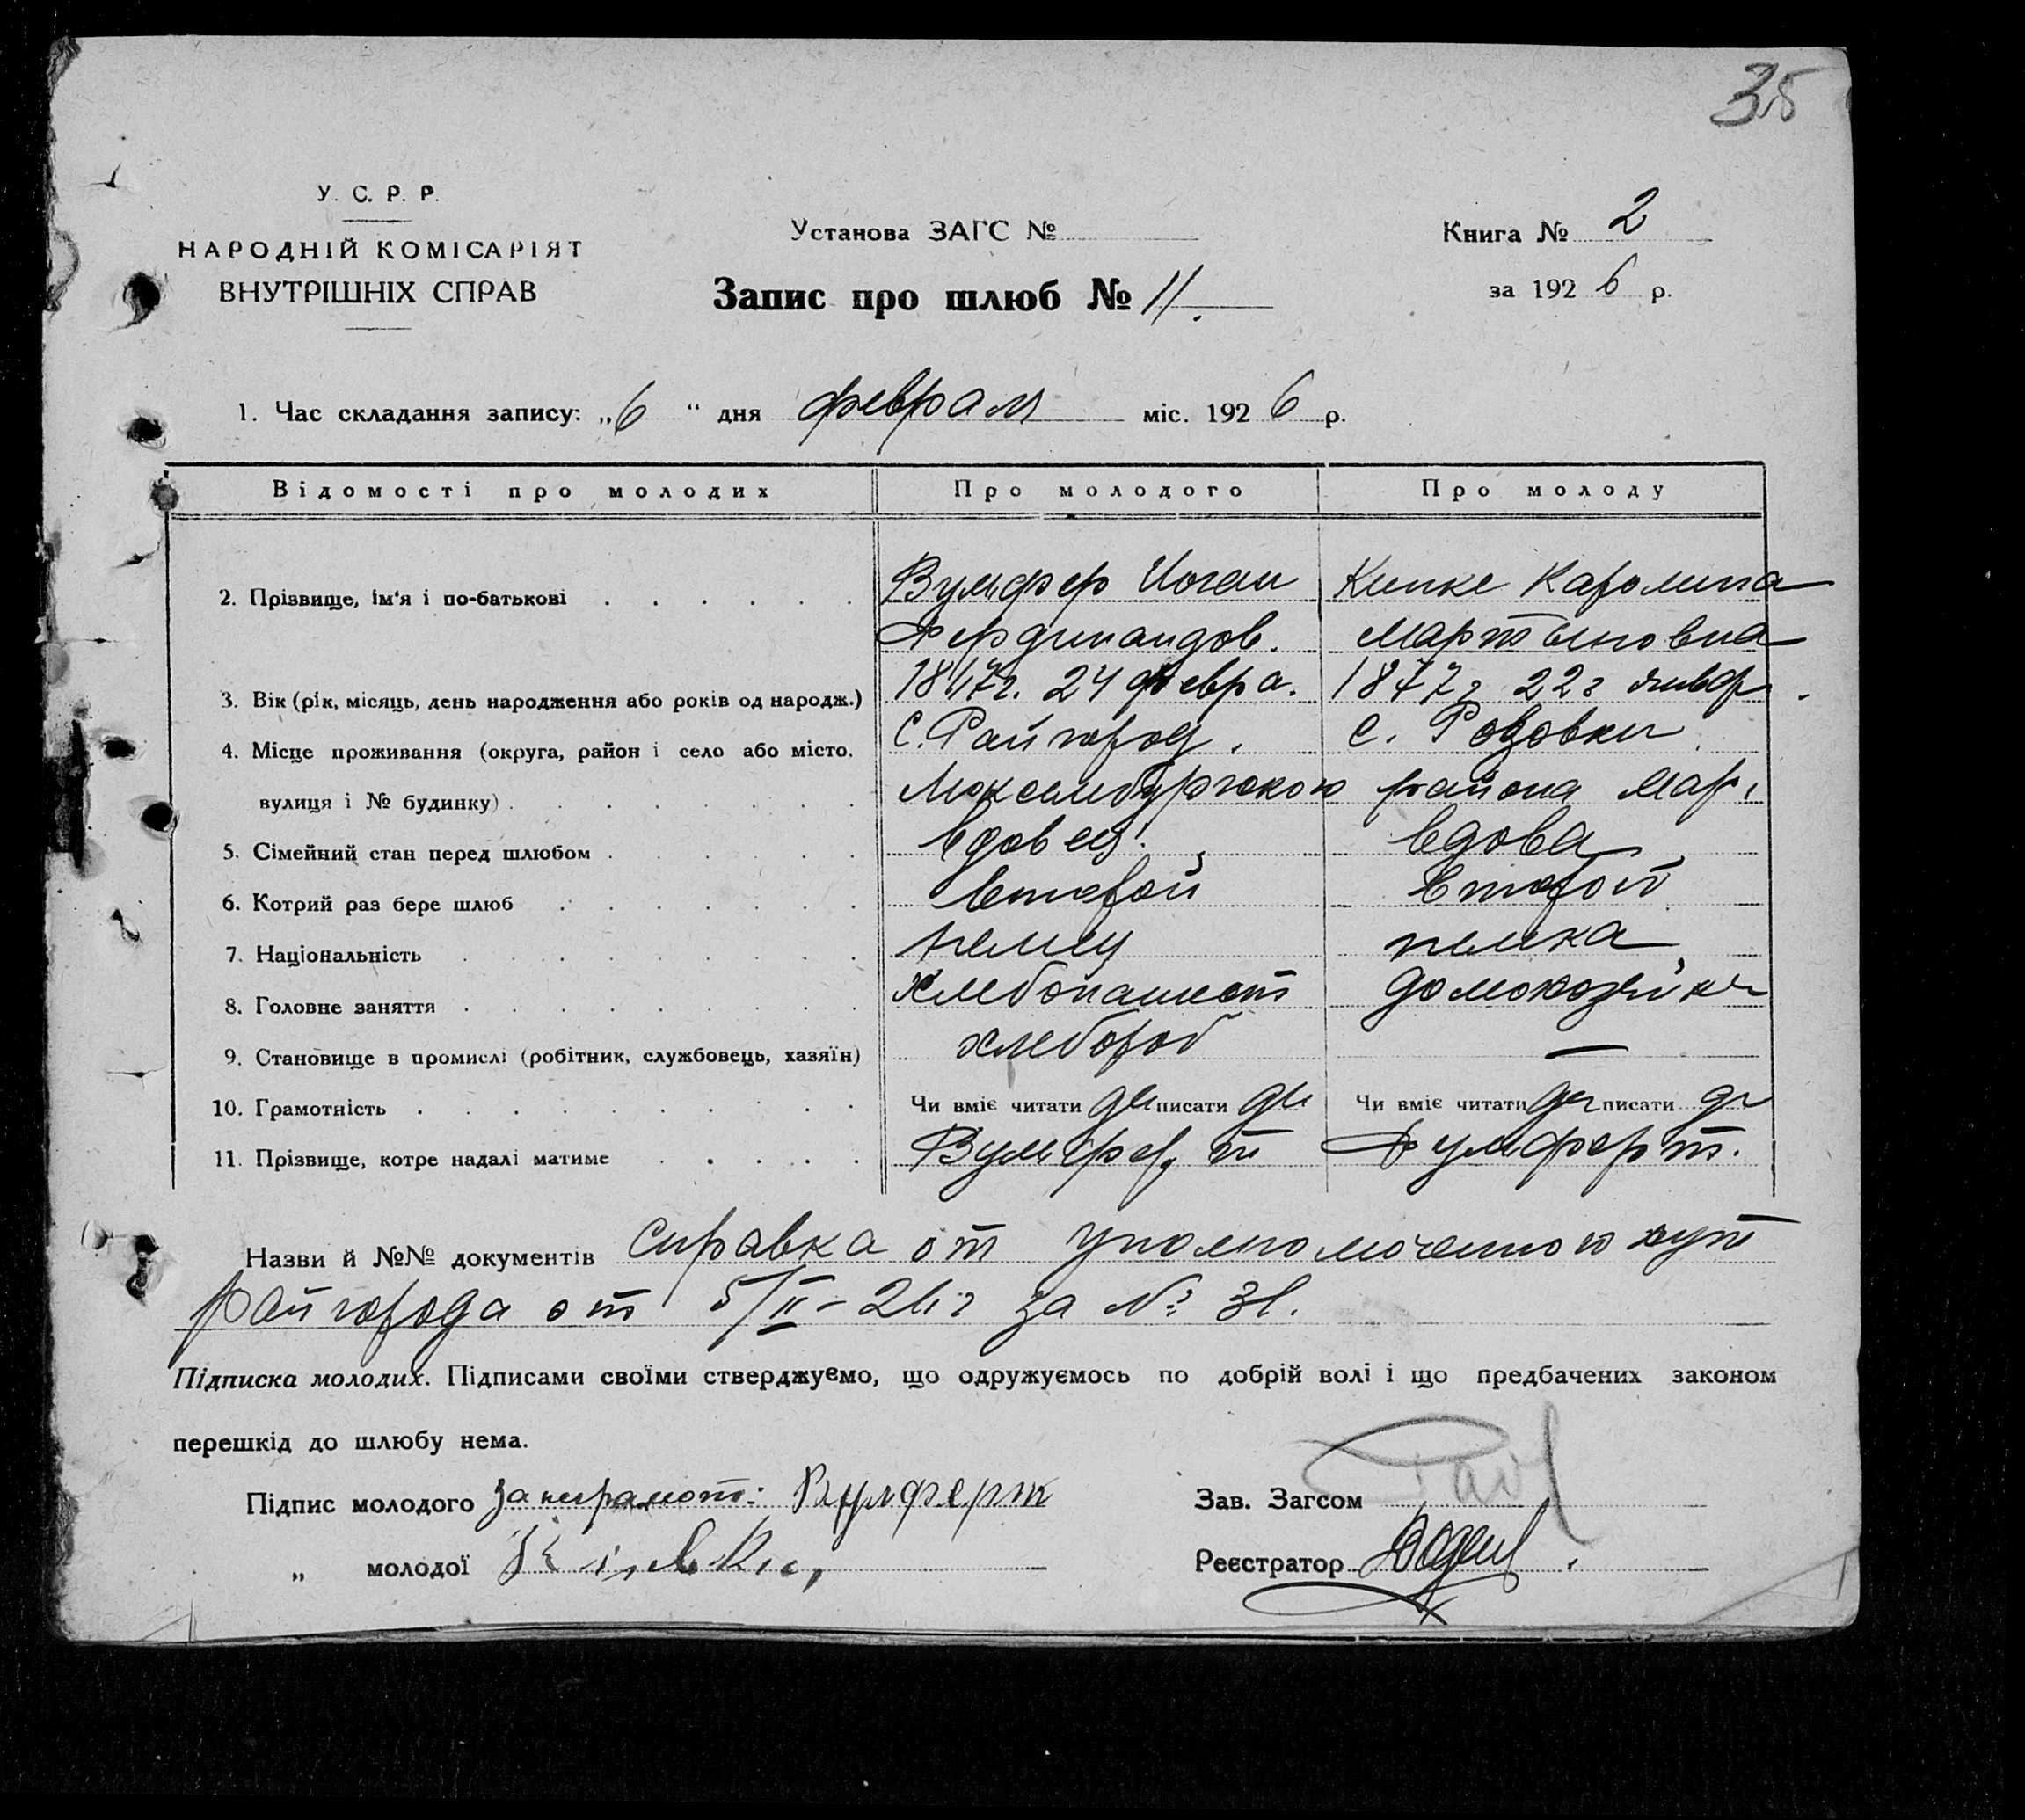 35
У. С. Р. Р.
НАРОДНІЙ КОМІСАРІЯТ
ВНУТРІШНІХ СПРАВ
Установа ЗАГС №
Запис про шлюб № 11.
Книга № 2
за 1926 р.
1. Час складання запису: „6 “ дня февраля міс. 1926 р.
Відомості про молодих Про молодого Про молоду
2. Прізвище, ім'я і по-батькові Вумфер Иоган Кипке Каролина
Фердинандов. Мартыновна
3. Вік (рік, місяць, день народження або років од народж.) 24 февра. 1877г 22г январ.
4. Місце проживання (округа, район і село або місто, с. Райгород. с. Розовки
вулиця і № будинку) Люксембургского района Мар.
5. Сімейний стан перед шлюбом вдовец. вдова
6. Котрий раз бере шлюб второй второй
7. Національність немец немка
8. Головне заняття хлебопашест домохозяйка
9. Становище в промислі (робітник, службовець, хазяїн) хлебороб —
10. Грамотність Чи вміє читати да писати да Чи вміє читати да писати да
11. Прізвище, котре надалі матиме Вумферт Вумферт.
Назви й №№ документів Справка от уполномоченного хут
Райгорода от 5/II-26г за № 31.
Підписка молодих. Підписами своїми стверджуємо, що одружуємось по добрій волі і що предбачених законом
перешкід до шлюбу нема.
Підпис молодого за неграмот: Вумферт
Зав. Загсом
„ молодої
Реєстратор